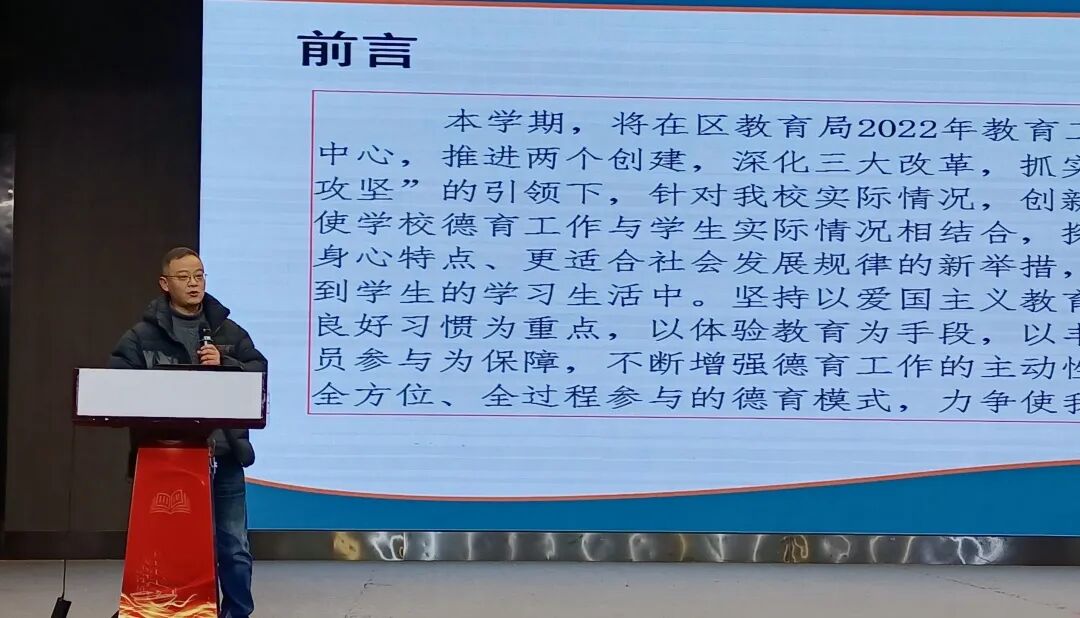 前言
本学期，将在区教育局2022年教育工
中心，推进两个创建，深化三大改革，抓实
攻坚”的引领下，针对我校实际情况，创新
使学校德育工作与学生实际情况相结合，探
身心特点、更适合社会发展规律的新举措，
到学生的学习生活中。坚持以爱国主义教育
良好习惯为重点，以体验教育为手段，以丰
员参与为保障，不断增强德育工作的主动性
全方位、全过程参与的德育模式，力争使我